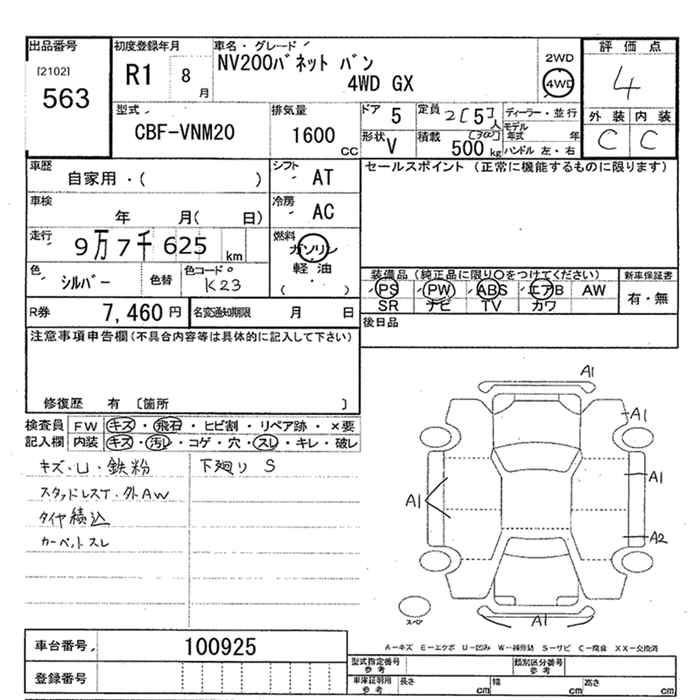 出品番号
[2102]
563
初度登録年月
R1 8月
車名・グレード
NV200バネット バン
4WD GX
2WD
4WD
評価点
4
外装 内装
C C
型式
CBF-VNM20
排気量
1600 CC
ドア 5
定員 2[5]人
形状 V
積載 [300]
500 kg
ディーラー・並行
モデル年式 年
ハンドル 左・右
車歴
自家用・( )
シフト AT
車検
年 月( 日)
冷房 AC
走行
9万7千625 km
燃料
ガソリン
軽油
( )
色 シルバー
色替
色コード
K23
R券 7,460円
名変通知期限 月 日
セールスポイント(正常に機能するものに限ります)
装備品(純正品に限り○をつけてください)
PS PW ABS エアB AW
SR ナビ TV カワ
新車保証書
有・無
後日品
注意事項申告欄(不具合内容等は具体的に記入して下さい)
修復歴 有 〔箇所 〕
検査員記入欄
FW キズ・飛石・ヒビ割・リペア跡・×要
内装 キズ・汚レ・コゲ・穴・スレ・キレ・破レ
キズ・U・鉄粉
下廻り S
スタッドレスT・外AW
タイヤ積込
カーペットスレ
A1
A1
A1
A1
A2
A1
スペア
A-キズ E-エクボ U-凹み W-補修跡 S-サビ C-腐食 XX-交換済
車台番号 100925
登録番号
型式指定番号
参考
類別区分番号
参考
車庫証明用
参考
長さ cm 幅 cm 高さ cm